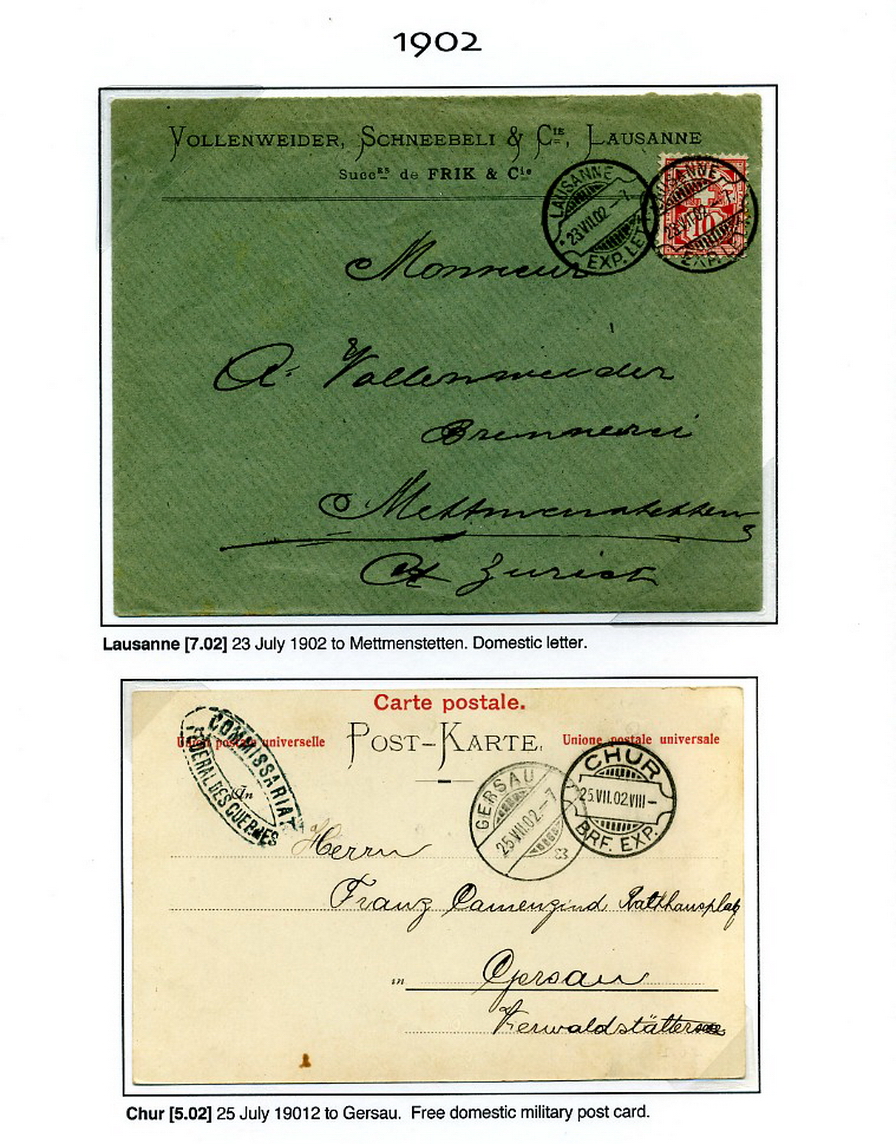 1902
VOLLENWEIDER, SCHNEEBELI & CIE, LAUSANNE
Succrs de FRIK & Cie
LAUSANNE
23.VII.02 – 7
EXP. LET.
LAUSANNE
23.VII.02 – 7
EXP. LET.
10
Monsieur
A. Vollenweider
Brennerei
Mettmenstetten
Ct Zurich
Lausanne [7.02] 23 July 1902 to Mettmenstetten. Domestic letter.
Carte postale.
Union postale universelle
POST–KARTE.
Unione postale universale
COMMISSARIAT
FÉDÉRAL DES GUERRES
An
GERSAU
25 VII 02 – 7
CHUR
25.VII.02.VIII –
BRF. EXP.
Herrn
Franz Camenzind Rathhausplatz
in Gersau
Vierwaldstättersee
Chur [5.02] 25 July 19012 to Gersau. Free domestic military post card.